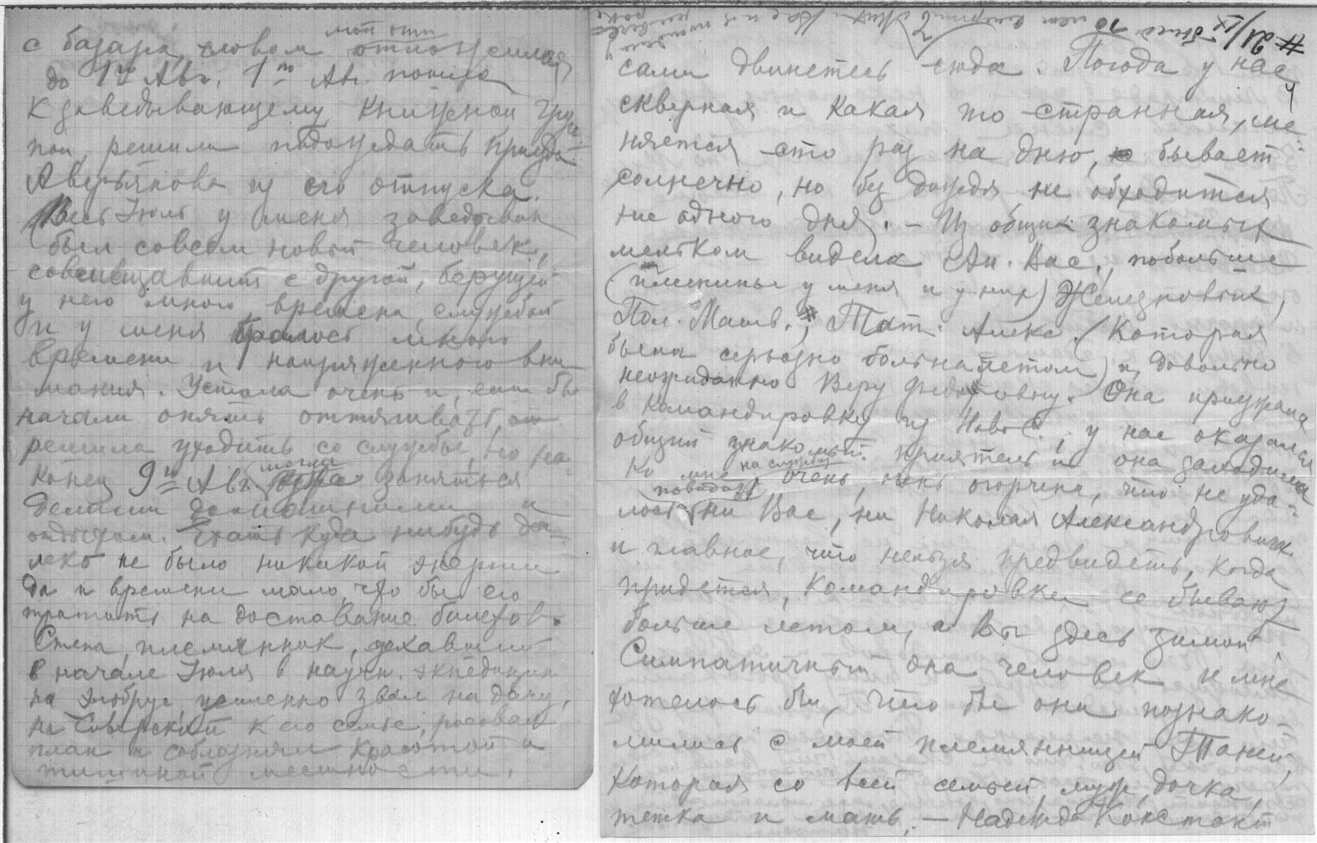 с базара, словом отпо
мой
до 1го Авг. 1го Ав. пошла
к заведывающему книжной груп-
пой, решили подождать приезда
Аверьянова из его отпуска.
Весь Июль у меня заведывал
был совсем новый человек,
с другой, берущей
у него много времени службой
и у меня много
времени и напряженного вни-
мания. Устала очень и, если бы
начали опять оттягивать,
решила уходить со службы, но на-
конец 9го Авг. могла заняться
делами домашними и
отдыхом. Ехать куда нибудь да-
леко не было никакой энергии
да и времени мало, что бы его
тратить на доставание билетов.
племянник,
в начале Июля в научн. экспедицию
на Эльбрус, усиленно звал на дачу,
на Сиверской к его семье, рисовал
план и соблазнял красотой и
тишиной местности.
21/IX
сами двинетесь сюда. Погода у нас
скверная и какая то странная, ме-
няется сто раз на дню, бывает
солнечно, но без дождя не обходится
ни одного дня. – Из общих знакомых
мельком видела Ан. Вас., побольше
(племянницы у меня и у них)
Пол. Матв., Тат. Алекс. (которая
была серьезно больна летом) и, довольно
неожиданно Веру Она приезжала
в командировку из Новос.; у нас оказался
общий знакомый приятель и она заходила
ко мне на службу очень, очень огорчена, что не уда-
лось повидать ни Вас, ни Николая Александровича
и главное, что нельзя предвидеть, когда
придется, командировки ее бывают
больше летом, а Вы здесь зимой.
Симпатичный она человек и мне
хотелось бы, что бы они познако-
мились с моей племянницей Таней,
которая со всей семьей муж, дочка,
тетка и мать, – Надежда Констант